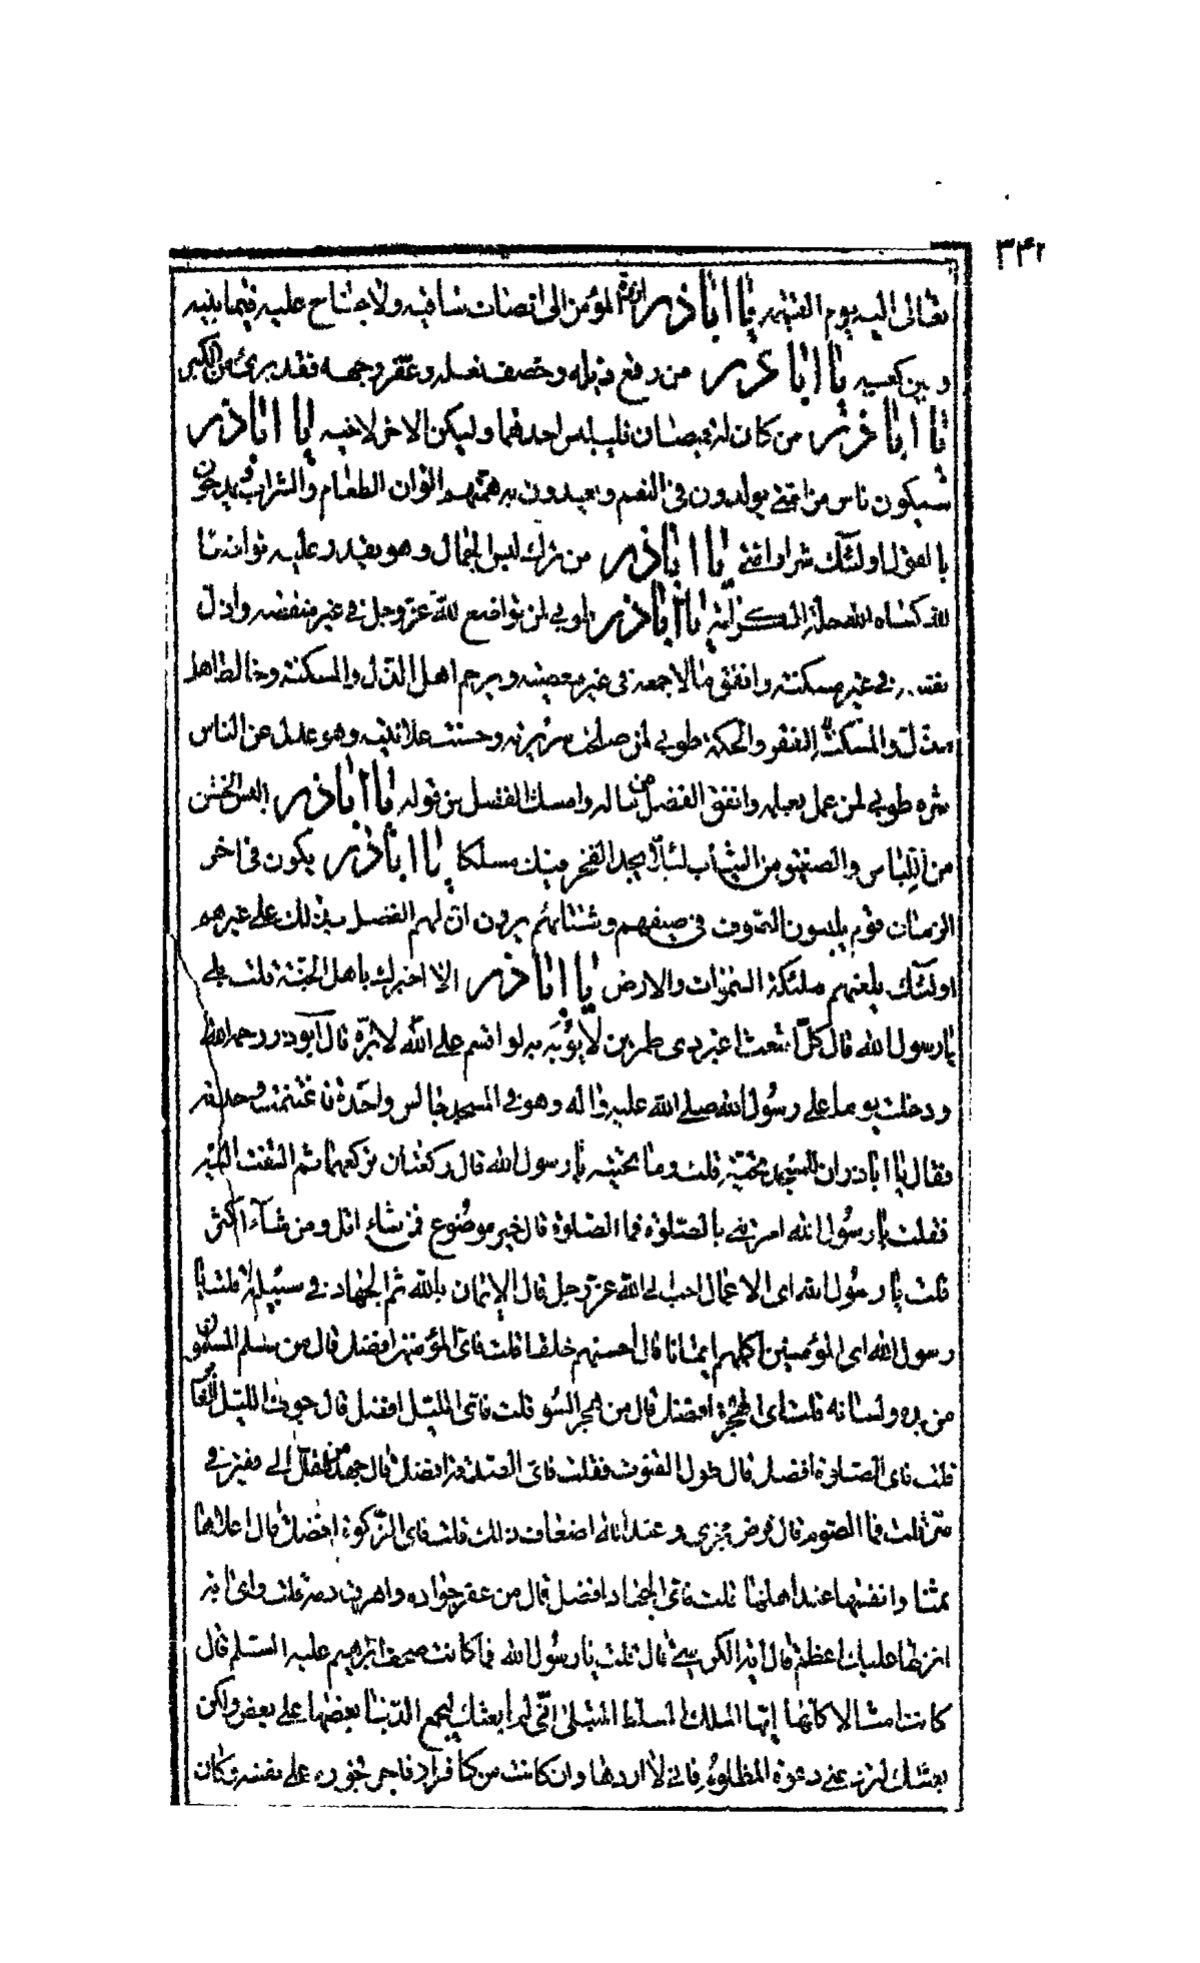 ٣٤٢
تعالى اليه يوم القيمة يا اباذر ازرة المؤمن الى انصاف ساقيه ولا جناح عليه فيما بينه
و بين كعبيه يا اباذر من رفع ذيله وخصف نعله وعفر وجهه فقد برئ من الكبر
يا اباذر من كان له قميصان فليلبس احدهما وليكن الاخر لاخيه يا اباذر
سيكون ناس من امتي يولدون في النعيم ويغذون به همتهم الوان الطعام والشراب ويمدحون
بالقول اولئك شرار امتي يا اباذر من ترك لبس الجمال وهو يقدر عليه تواضعا
لله كساه الله حلة الكرامة يا اباذر طوبى لمن تواضع لله عز وجل في غير منقصة واذل
نفسه في غير مسكنة وانفق مالا جمعه في غير معصية ويرحم اهل الذل والمسكنة وخالط اهل
والمسكنة الفقر والحكمة طوبى لمن صلحت سريرته وحسنت علانيته وهو عدل عن الناس
شره طوبى لمن عمل بعلمه وانفق الفضل من ماله وامسك الفضل من قوله يا اباذر البس الخشن
من اللباس والصفيق من الثياب لئلا يجد الفخر فيك مسلكا يا اباذر يكون في اخر
الزمان قوم يلبسون الصوف في صيفهم وشتائهم يرون ان لهم الفضل بذلك على غيرهم
اولئك يلعنهم ملئكة السموات والارض يا اباذر الا اخبرك باهل الجنة قلت بلى
يا رسول الله قال كل اشعث اغبر ذى طمرين لا يؤبه به لو اقسم على الله لابره قال ابوذر رحمه الله
ودخلت يوما على رسول الله صلى الله عليه واله وهو في المسجد جالس واحدة فاغتنمت وحدته
فقال يا اباذر ان للمسجد تحية قلت وما تحيته يا رسول الله قال ركعتان تركعهما ثم التفت اليه
فقلت يا رسول الله امرتنى بالصلوة فما الصلوة قال خير موضوع فمن شاء اقل ومن شاء اكثر
قلت يا رسول الله اى الاعمال احب الى الله عز وجل قال الايمان بالله ثم الجهاد في سبيله قلت يا
رسول الله اى المؤمنين اكملهم ايمانا قال احسنهم خلقا قلت فاى المؤمنين افضل قال من سلم المسلمون
من يده ولسانه قلت اى الهجرة افضل قال من هجر السوء قلت فاى الليل افضل قال جوف الليل الغابر
قلت فاى الصلوة افضل قال طول القنوت فقلت فاى الصدقة افضل قال جهد من مقل الى فقير في
سر قلت فما الصوم قال فرض مجزى وعند الله اضعاف ذلك قلت فاى الزكوة افضل قال اعلاها
ثمنا وانفسها عند اهلها قلت فاى الجهاد افضل قال من عقر جواده واهريق دمه قلت واى اية
انزلها عليك اعظم قال اية الكرسي قال قلت يا رسول الله فما كانت صحف ابرهيم عليه السلم قال
كانت امثالا كلها ايها الملك المسلط المبتلى انى لم ابعثك لتجمع الدنيا بعضها على بعض ولكن
بعثتك لترد عنى دعوة المظلوم فانى لا اردها وان كانت من كافر او فاجر فجوره على نفسه وكان